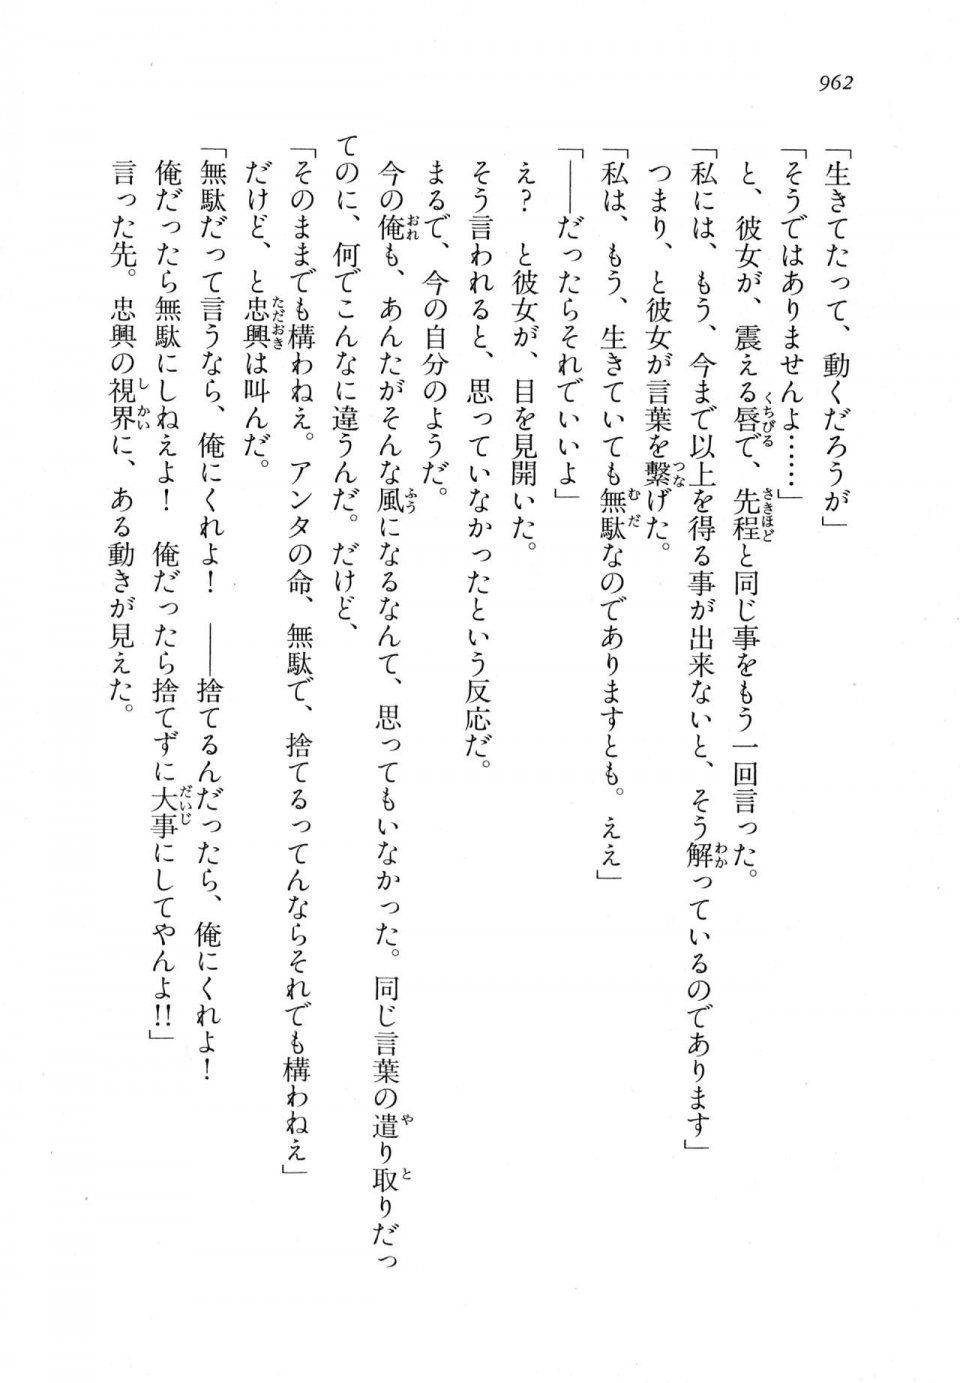 962
「生きてたって、動くだろうが」
「そうではありませんよ……」
と、彼女が、震える唇で、先程と同じ事をもう一回言った。
「私には、もう、今まで以上を得る事が出来ないと、そう解っているのであります」
つまり、と彼女が言葉を繋げた。
「私は、もう、生きていても無駄なのでありますとも。ええ」
「――だったらそれでいいよ」
え？　と彼女が、目を見開いた。
そう言われると、思っていなかったという反応だ。
まるで、今の自分のようだ。
今の俺も、あんたがそんな風になるなんて、思ってもいなかった。同じ言葉の遣り取りだっ
てのに、何でこんなに違うんだ。だけど、
「そのままでも構わねえ。アンタの命、無駄で、捨てるってんならそれでも構わねえ」
だけど、と忠興は叫んだ。
「無駄だって言うなら、俺にくれよ！　――捨てるんだったら、俺にくれよ！
俺だったら無駄にしねえよ！　俺だったら捨てずに大事にしてやんよ!!」
言った先。忠興の視界に、ある動きが見えた。